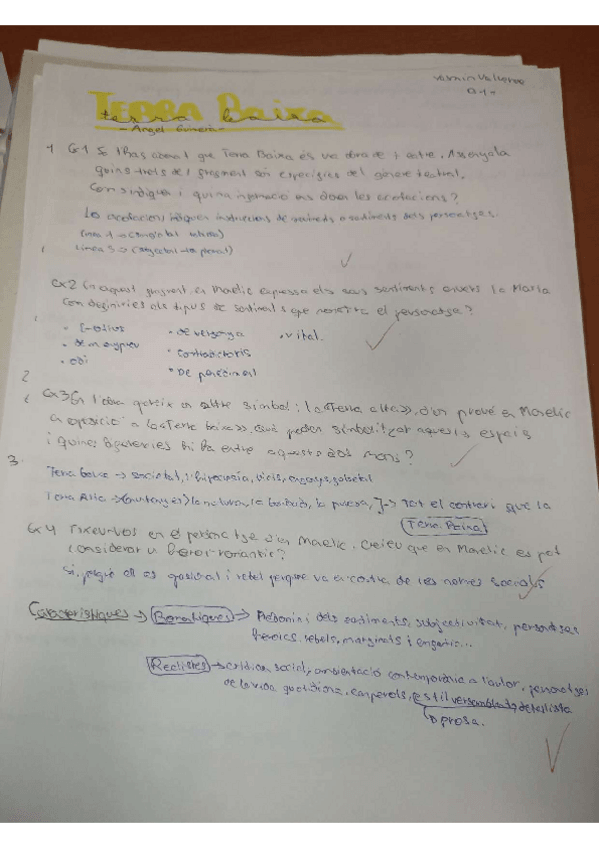 TERRA Baixa
terra baixa
- Àngel Guimerà -
1 Ex1 S'has adonat que Terra Baixa és una obra de teatre. Assenyala
quins trets del fragment són específics del gènere teatral.
Com s'indiquen i quina informació ens donen les acotacions?
Les acotacions indiquen instruccions de moviments o sentiments dels personatges.
Línea 1 ->
Línea 5 ->
Ex2 En aquest fragment, en Manelic expressa els seus sentiments envers la Marta
Com definiríes els tipus de sentiments que mostra el personatge?
• de vergonya
• vital.
• de menyspreu
• contradictoris
• odi
• De passional
2
Ex3 En l'obra apareix un altre símbol: la «Terra alta», d'on prové en Manelic
en oposició a la «Terra baixa», què poden simbolitzar aquests espais
i quines diferències hi ha entre aquests dos mons?
3.
Terra baixa -> societat, hipocresia, vicis, enganys, falsetat
Terra Alta -> (muntanyes) la natura, la bondat, la puresa, ] -> Tot el contrari que la
Terra Baixa
Ex4 Fixeu-vos en el personatge d'en Manelic. Creieu que en Manelic es pot
considerar un heroi romàntic?
Si, perquè és passional i rebel perque va en contra de les normes socials
Característiques -> Romàntiques -> Predomini dels sentiments, subjectivitat, personatges
heroics, rebels, marginats i
Realistes -> crítica social, ambientació contemporània a l'autor, personatges
de la vida quotidiana, camperols, estil versemblant, detallista
prosa.